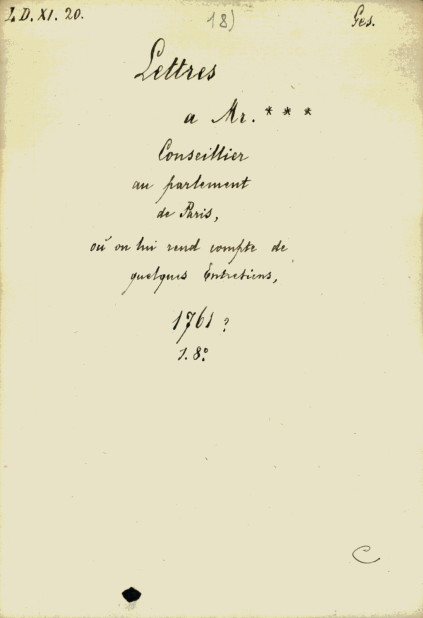 J. D. XI. 20.
18)
Ges.
Lettres
a Mr. * * *
Conseillier
au parlement
de Paris,
où on lui rend compte de
quelques Entretiens,
1761 ?
1. 8°
C